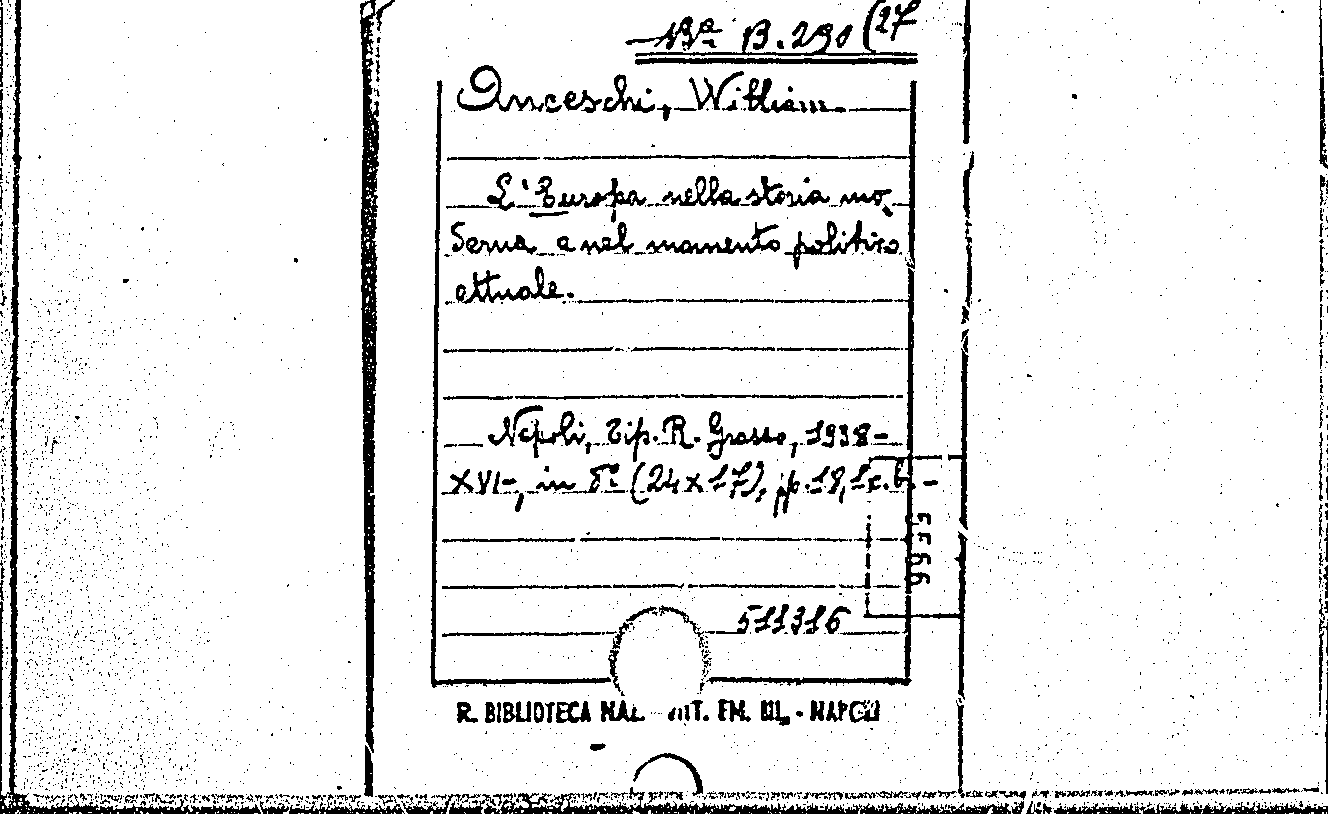 Bª B.290 (27
Anceschi, William.
L'Europa nella storia mo,
derna e nel momento politico
attuale.
Napoli, Tip. R. Grasso, 1938-
XVI-, in 8° (24 x 17), pp. 18, 1 c. b. -
5566
511316
R. BIBLIOTECA NAZ. VIT. EM. III. - NAPOLI